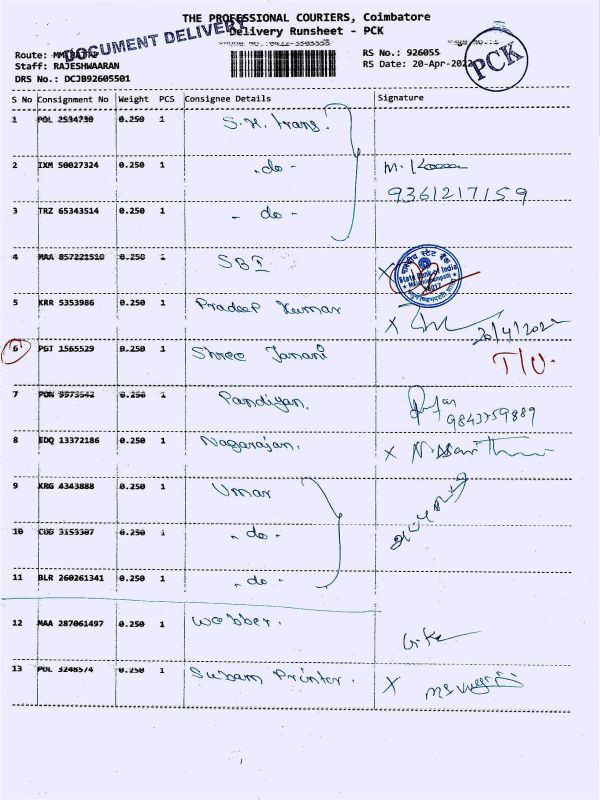 THE PROFESSIONAL COURIERS, Coimbatore
DOCUMENT DELIVERY
Delivery Runsheet - PCK
Route:
RS No.: 926055
PCK
Staff: RAJESHWAARAN
RS Date: 20-Apr-2022
DRS No.: DCJB92605501
S No Consignment No Weight PCS Consignee Details Signature
1 POL 2534730 0.250 1 S.K. trans.
2 IXM 50027324 0.250 1 - do -
9361217159
3 TRZ 65343514 0.250 1 - do -
4 MAA 857221510 0.250 1 SBI X
भारतीय स्टेट बैंक
State Bank of India
5 KRR 5353986 0.250 1 Pradeep Kumar X
20/4/2022
6 PGT 1565529 0.250 1 Shree Janani T/U.
7 PON 9573542 0.250 1 Pandiyan.
9843759889
8 EDQ 13372186 0.250 1 Nagarajan. X
9 KRG 4343888 0.250 1 Umar
10 CUD 3153307 0.250 1 - do -
11 BLR 260261341 0.250 1 - do -
12 MAA 287061497 0.250 1 Webber.
13 POL 3248574 0.250 1 Subam Printer. X